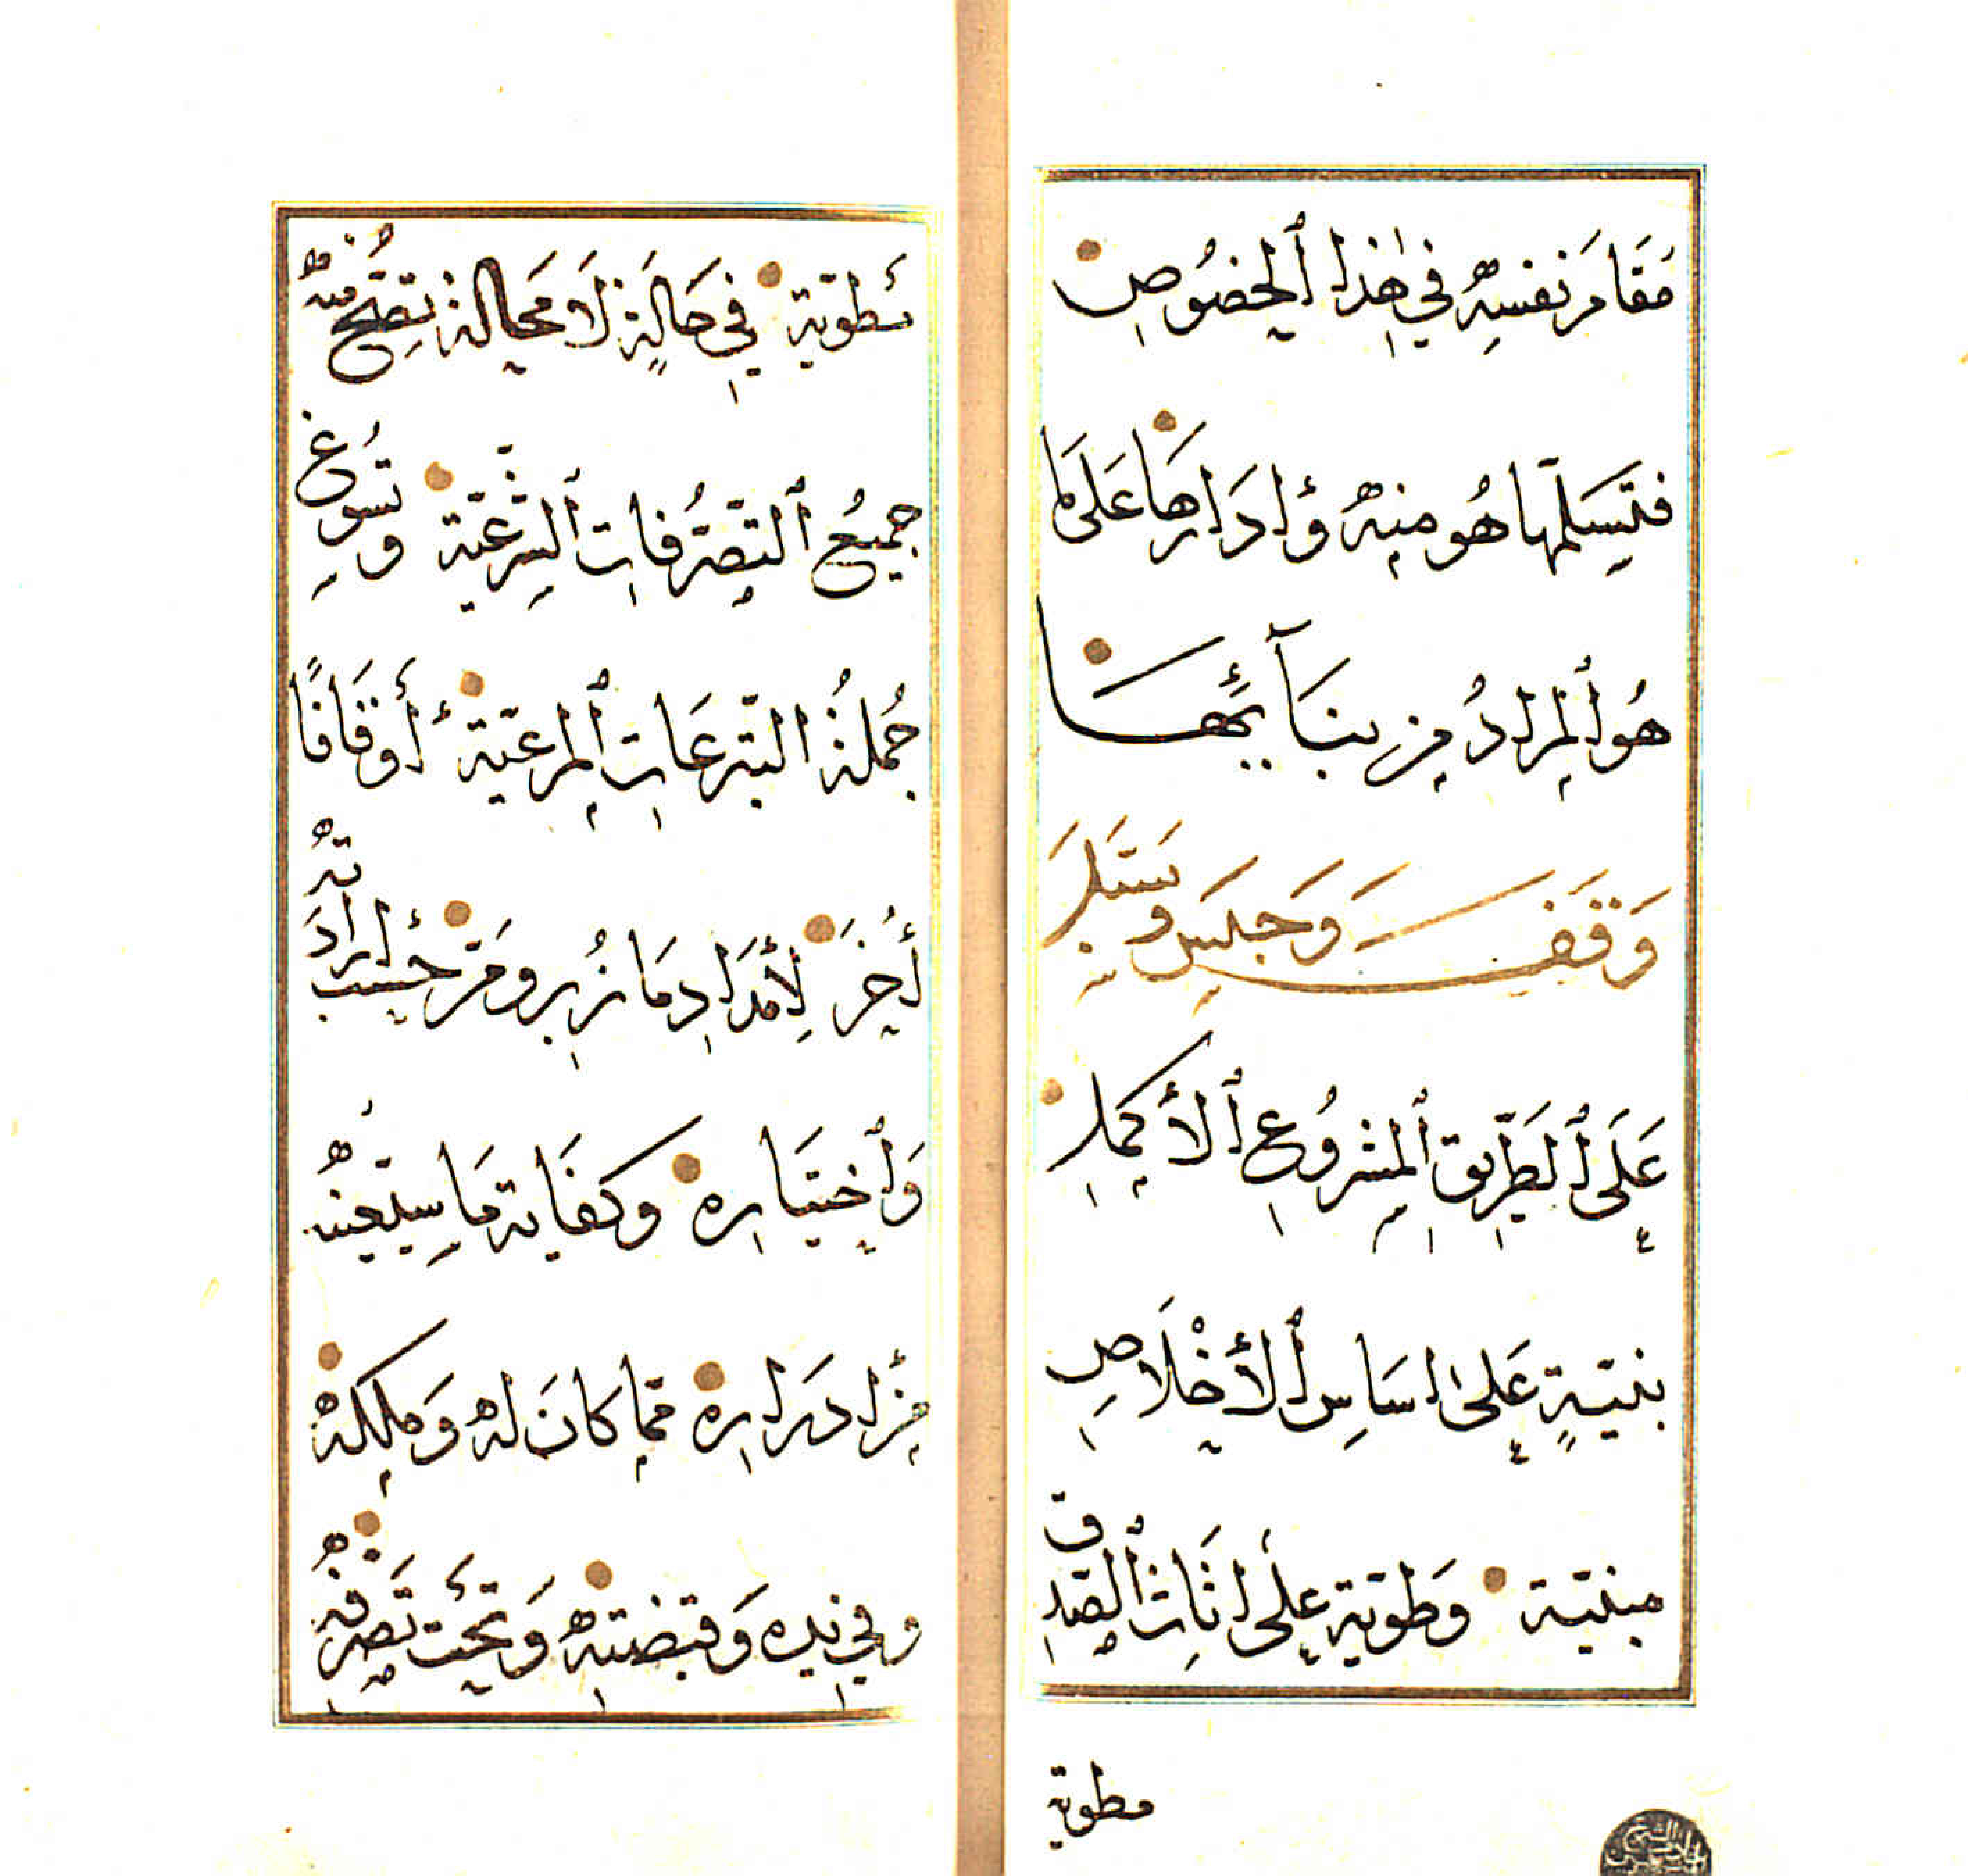 مُقَامَ نفسِهِ في هٰذا ٱلخصُوصِ
فتَسَلَّمَها هُو منهُ وٱدَارهَا عَلى مَا
هُو ٱلمرادُ مِن بنَآئِهَا
وَقَفَ وَحَبَسَ وسَبَّلَ
عَلَى ٱلطَّرِيقِ ٱلمشرُوعِ ٱلأكملِ
بنيّةٍ عَلى اسَاسِ ٱلأخْلَاصِ
مبنيّة وَطويّة على اثَاثِ ٱلصّدق
مطوية
مَطويّة في حَالَةٍ لَا مَحَالة تصِحُّ منهُ
جميعُ ٱلتصَرُّفاتِ ٱلشرعيّة وتسوغُ
جُملةُ التبرعَاتِ ٱلمرعيّة أوقَافًا
أُخَرَ لِأمدَادِ مَا نُزبر ومَرّ حسب ارادَتهُ
وَٱختيَاره وكفَاية مَا سيعيّنهُ
مِن ادرَاره ممّا كانَ لهُ وَملكهُ
وفي يده وَقبضتهِ وَتحتَ تَصرفهِ